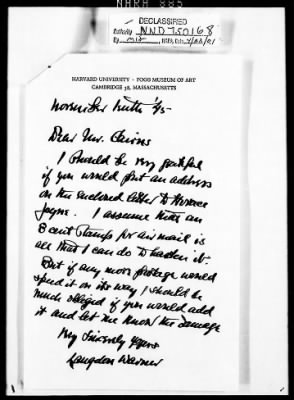 DECLASSIFIED
Authority NND 750168
HARVARD UNIVERSITY · FOGG MUSEUM OF ART
CAMBRIDGE 38, MASSACHUSETTS
November ninth '45
Dear Mr. Cairns
I should be very grateful
if you would put an address
on the enclosed letter to Horace
Jayne. I assume that an
8 cent stamp for air mail is
all that I can do to hasten it.
But if any more postage would
speed it on its way I should be
much obliged if you would add
it and let me know the damage
Very Sincerely Yours
Langdon Warner